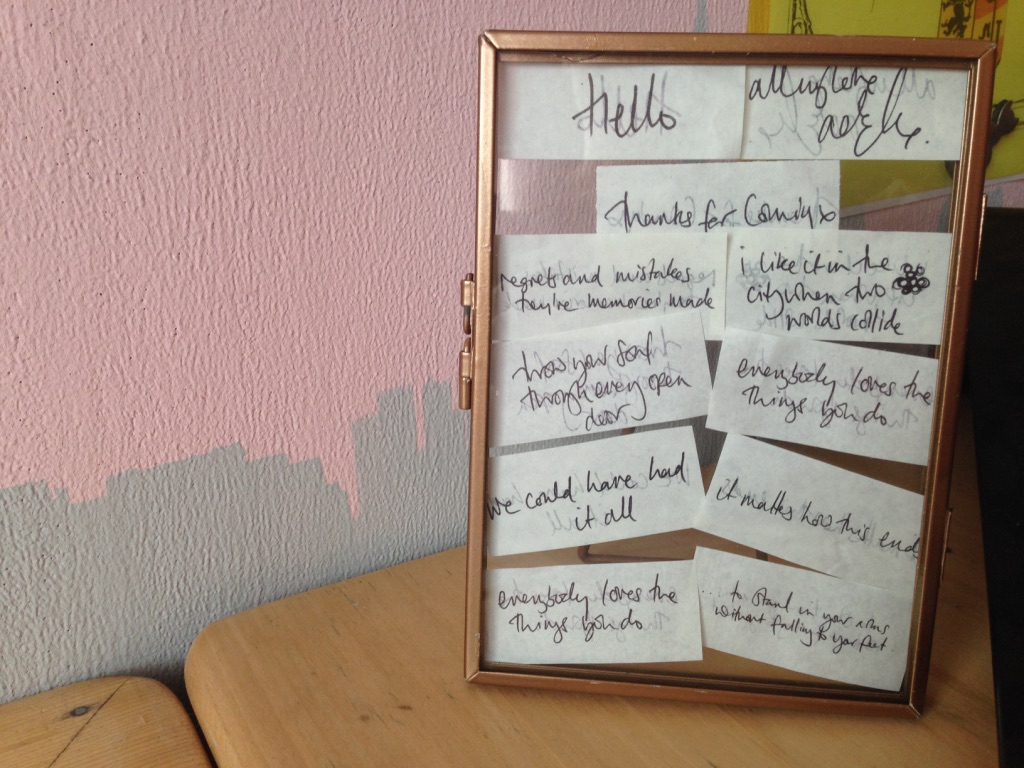 Hello
all my love
adele.
thanks for coming x
regrets and mistakes
they're memories made
i like it in the
city when two
worlds collide
throw your soul
through every open
door
everybody loves the
things you do
we could have had
it all
it matters how this ends
everybody loves the
things you do
... to stand in your arms
without falling to your feet